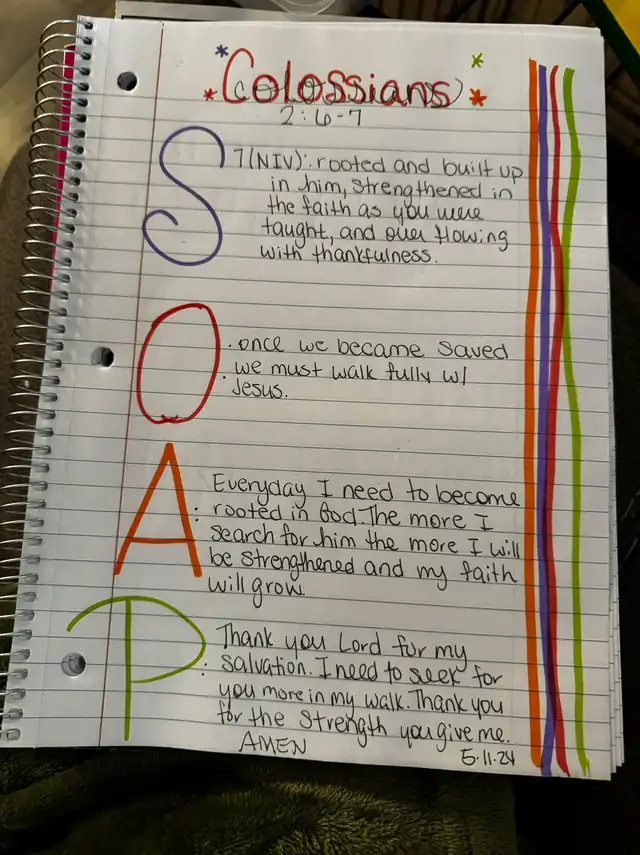 Colossians
2:6-7
S 7(NIV): rooted and built up
in him, strengthened in
the faith as you were
taught, and over flowing
with thankfulness.
O : once we became saved
we must walk fully w/
Jesus.
A : Everyday I need to become
rooted in God. The more I
search for him the more I will
be strengthened and my faith
will grow.
P : Thank you Lord for my
salvation. I need to seek for
you more in my walk. Thank you
for the strength you give me.
AMEN
5.11.24